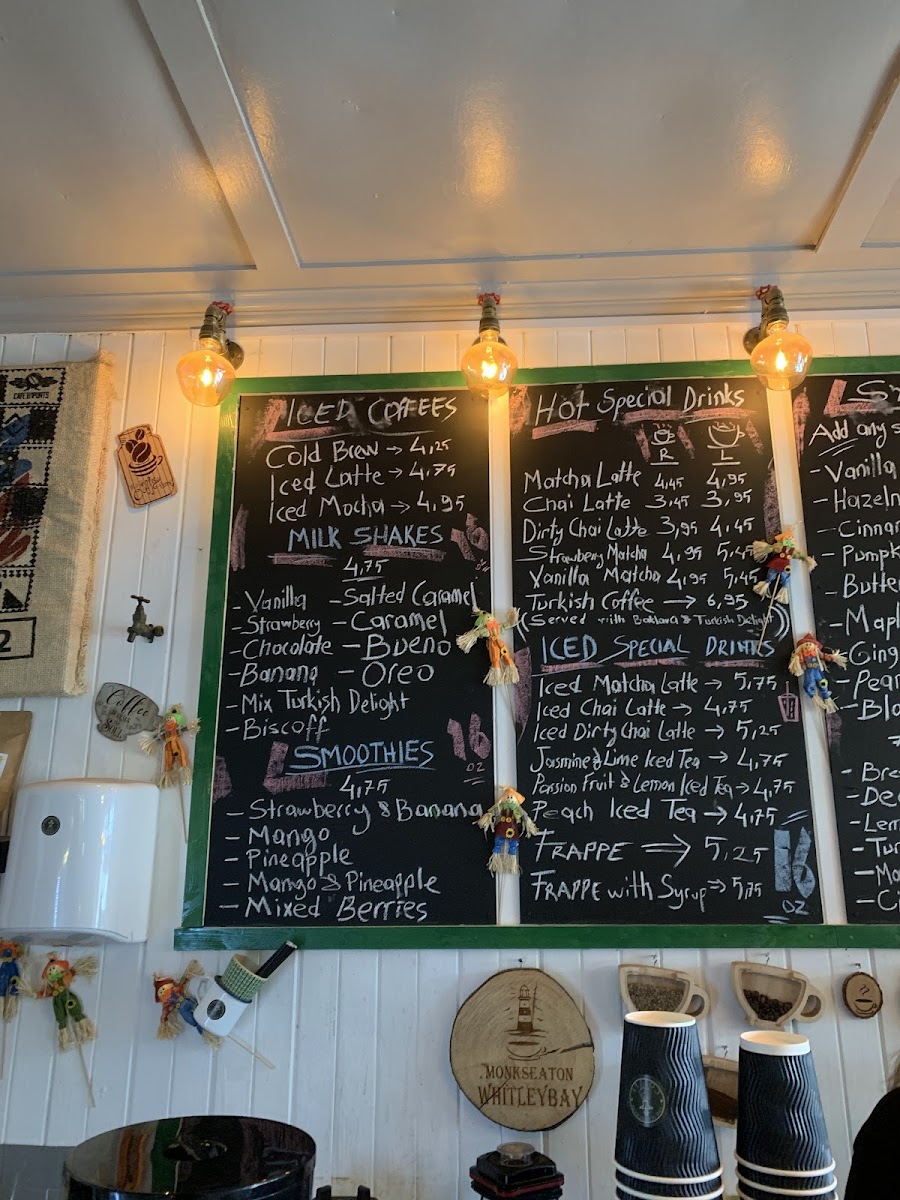 CAFE IMPORTS
2
Coffee
ICED COFFEES
Cold Brew → 4,25
Iced Latte → 4,75
Iced Mocha → 4,95
MILK SHAKES 16
4,75
- Vanilla - Salted Caramel
- Strawberry - Caramel
- Chocolate - Bueno
- Banana - Oreo
- Mix Turkish Delight
- Biscoff
SMOOTHIES 16 oz
4,75
- Strawberry & Banana
- Mango
- Pineapple
- Mango & Pineapple
- Mixed Berries
Hot Special Drinks
R L
Matcha Latte 4,45 4,95
Chai Latte 3,45 3,95
Dirty Chai Latte 3,95 4,45
Strawberry Matcha 4,95 5,45
Vanilla Matcha 4,95 5,45
Turkish Coffee → 6,95
(Served with Baklava & Turkish Delight)
ICED SPECIAL DRINKS
Iced Matcha Latte → 5,75
Iced Chai Latte → 4,75
Iced Dirty Chai Latte → 5,25
Jasmine & Lime Iced Tea → 4,75
Passion Fruit & Lemon Iced Tea → 4,75
Peach Iced Tea → 4,75
FRAPPE → 5,25
FRAPPE with Syrup → 5,75
16 oz
Add any s
- Vanilla
- Hazeln
- Cinnam
- Pumpk
- Butter
- Mapl
- Ging
- Pear
- Bla
- Bre
- Dec
- Lem
- Tur
- Ma
- Ci
MONKSEATON
WHITLEYBAY